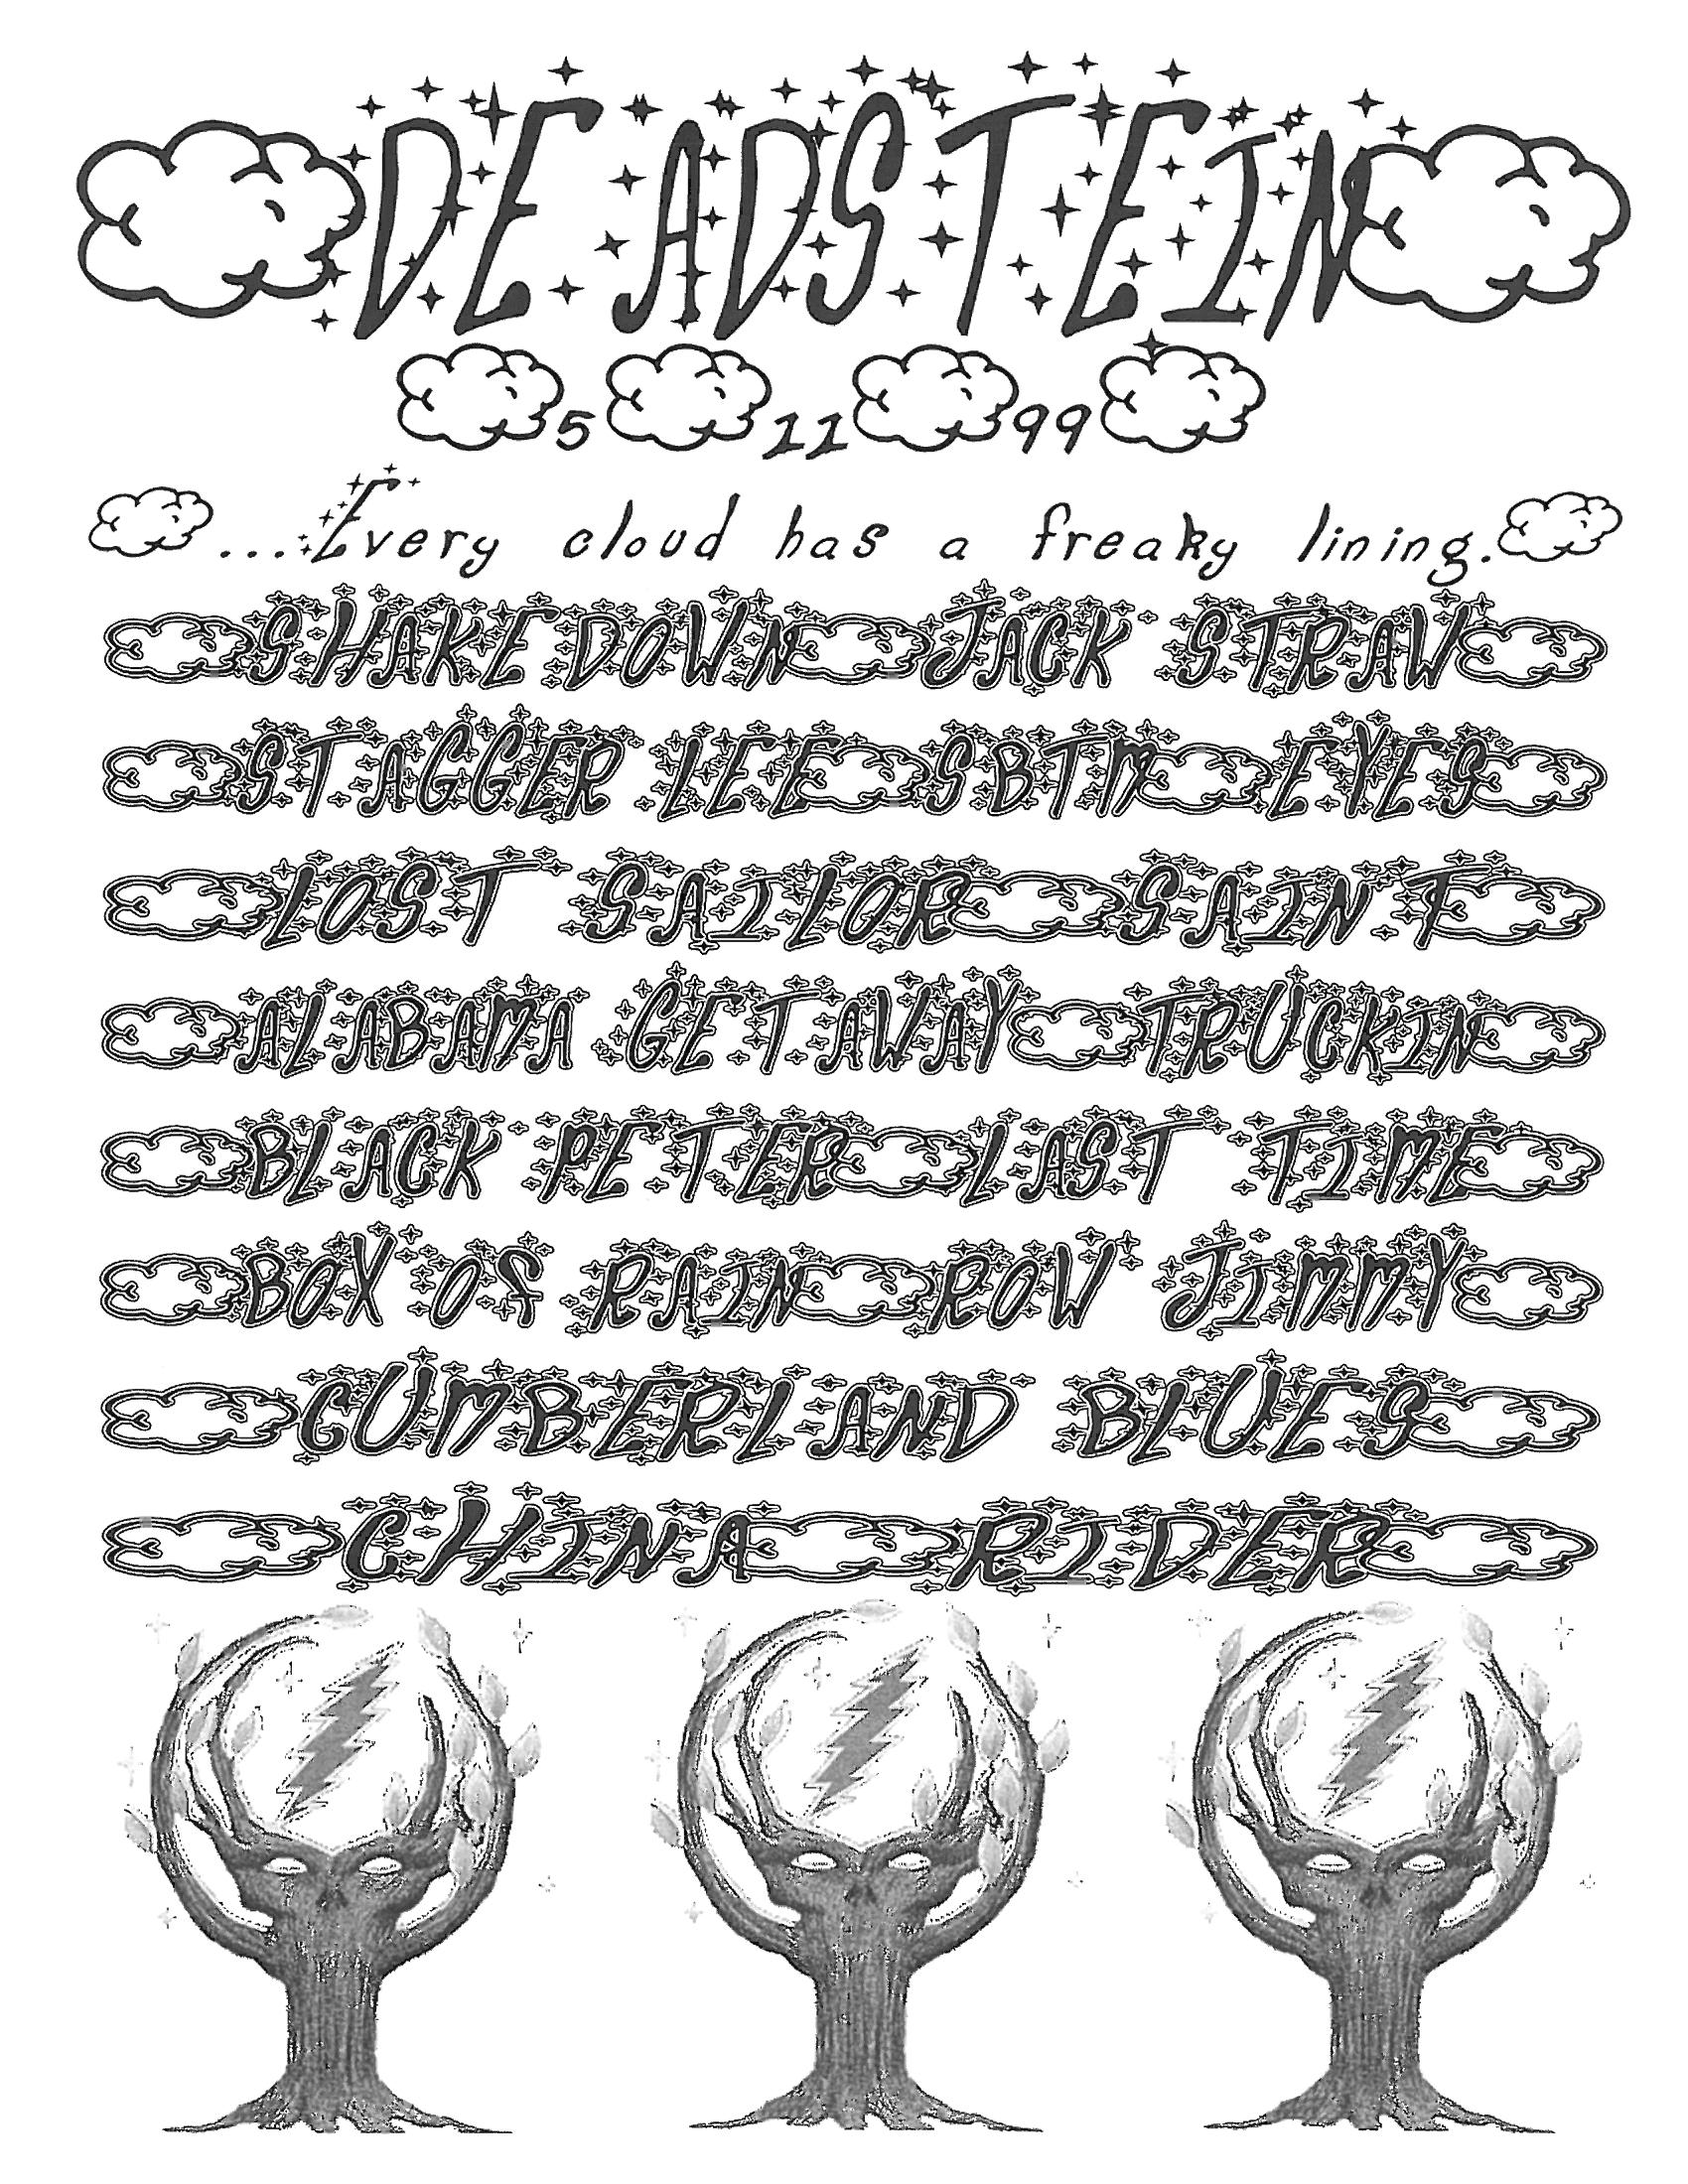 DEADSTEIN
5 11 99
...Every cloud has a freaky lining.
SHAKEDOWN JACK STRAW
STAGGER LEE SBTM EYES
LOST SAILOR SAINT
ALABAMA GETAWAY TRUCKIN
BLACK PETER LAST TIME
BOX OF RAIN ROW JIMMY
CUMBERLAND BLUES
CHINA RIDER